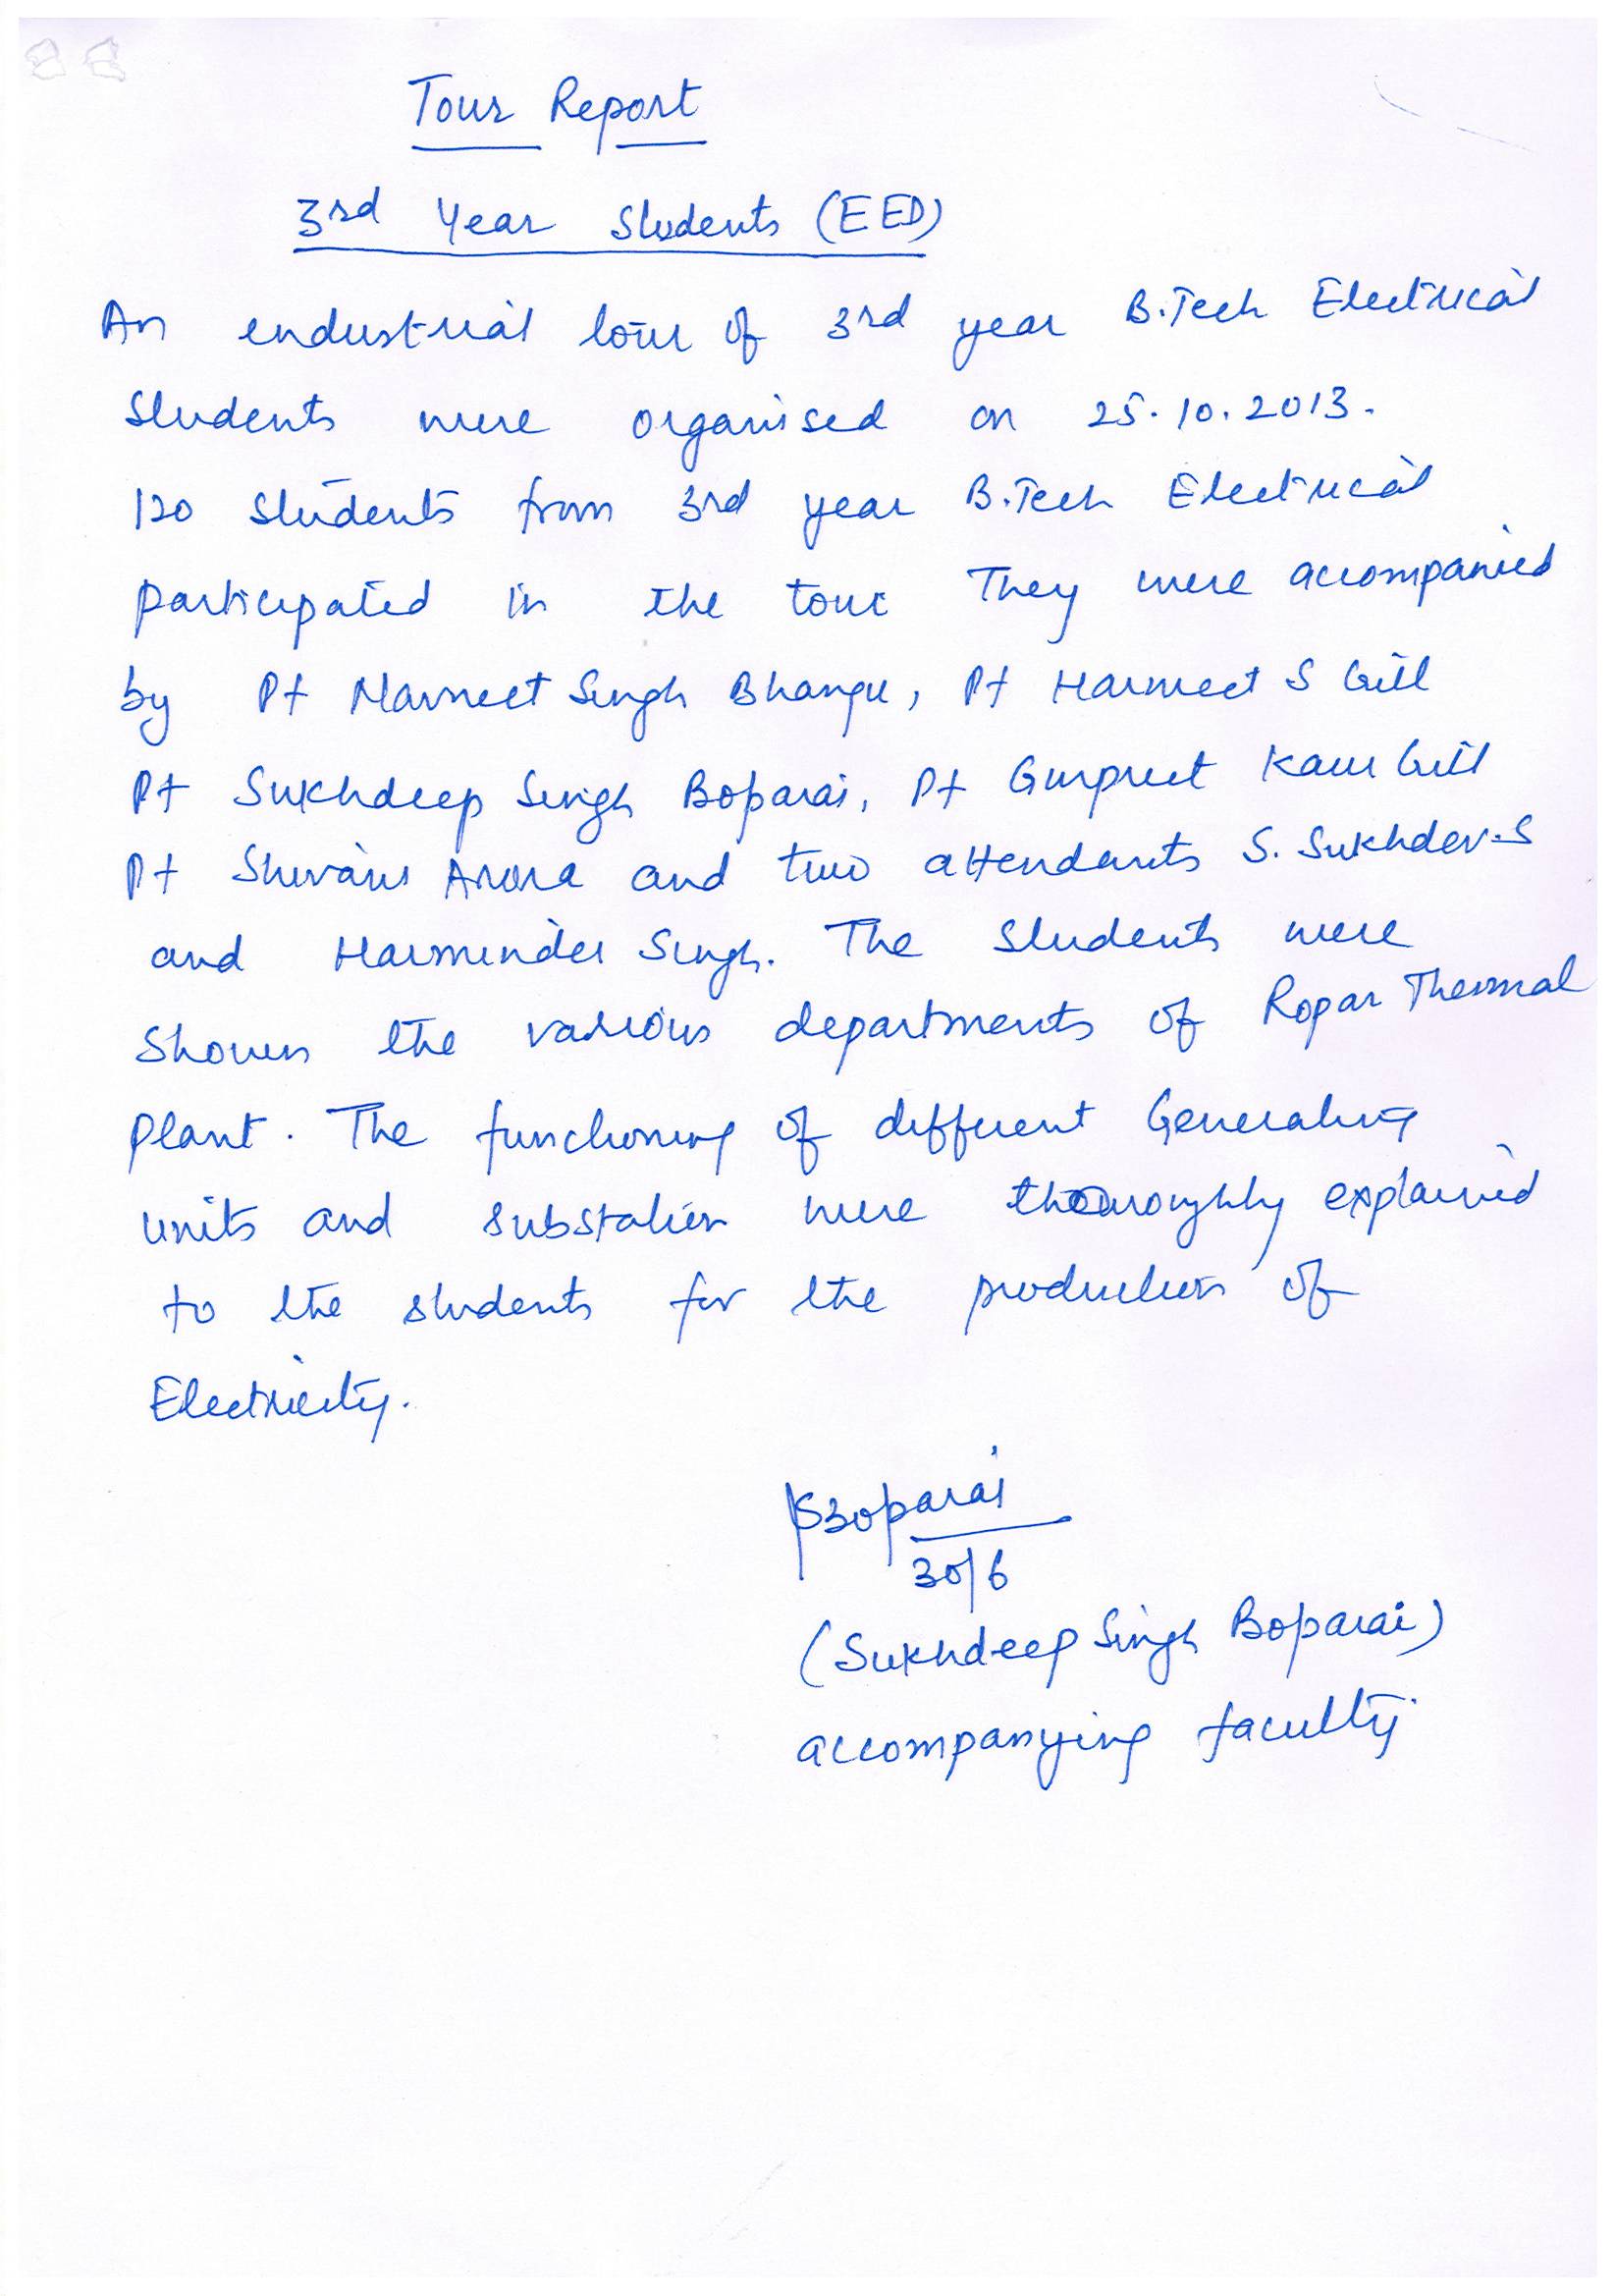 Tour Report
3rd Year Students (EED)
An industrial tour of 3rd year B.Tech Electrical
Students were organised on 25.10.2013.
120 students from 3rd year B.Tech Electrical
participated in the tour They were accompanied
by Pf Navneet Singh Bhangu, Pf Harmeet S Gill
Pf Sukhdeep Singh Boparai, Pf Gurpreet Kaur Gill
Pf Arora and two attendants S. Sukhdev.S
and Harminder Singh. The students were
shown the various departments of Ropar Thermal
plant. The functioning of different Generating
units and substation were thoroughly explained
to the students for the production of
Electricity.
SBoparai
30/6
(Sukhdeep Singh Boparai)
accompanying faculty